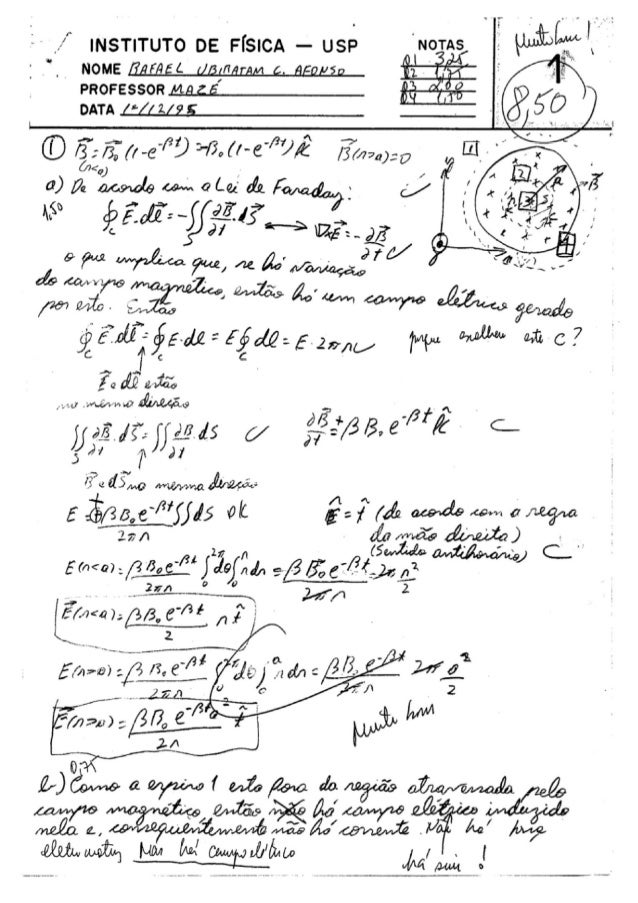 INSTITUTO DE FÍSICA — USP
NOME RAFAEL UBIRATAM C. AFONSO
PROFESSOR MAZÉ
DATA 1º/12/95
NOTAS
Q1 3,25
Q2
Q3 2,00
Q4 1,50
Muito bom!
1
8,50
① B⃗ = B⃗₀ (1-e^-βt) = B₀ (1-e^-βt) k̂ B⃗(r>a)=0
(r<a)
a) De acordo com a Lei de Faraday:
1,50
∮c E⃗.dl⃗ = -∬s ∂B⃗/∂t . dS⃗ ⟷ ∇×E⃗ = -∂B⃗/∂t
o que implica que, se há variação
do campo magnético, então há um campo elétrico gerado
por esta. Então
∮c E⃗.dl⃗ = ∮c E.dl = E∮c dl = E.2πr porque escolheu este C?
E⃗ e dl⃗ estão
na mesma direção
∬s ∂B⃗/∂t . dS⃗ = ∬ ∂B/∂t dS ∂B⃗/∂t = +βB₀ e^-βt k̂
B⃗ e dS⃗ na mesma direção
E = +βB₀e^-βt/2πr ∬dS OK Ê = t̂ (de acordo com a regra
da mão direita)
(Sentido antihorário)
E(r<a) = βB₀e^-βt/2πr ∫₀^2π dθ ∫₀^r r dr = βB₀e^-βt/2πr 2π r²/2
E⃗(r<a) = βB₀e^-βt/2 r t̂
E(r>a) = βB₀e^-βt/2πr ∫₀^2π dθ ∫₀^a r dr = βB₀e^-βt/2πr 2π a²/2
E⃗(r>a) = βB₀e^-βt a²/2r t̂
Muito bom
0,75
b-) Como a espira 1 está fora da região atravessada pelo
campo magnético, então não há campo elétrico induzido
nela e, consequentemente não há corrente. Não há força
eletromotriz Mas há campo elétrico
há sim!